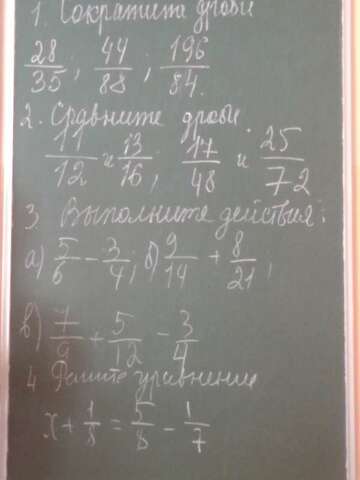 1. Сократите дроби
28/35; 44/88; 196/84.
2. Сравните дроби
11/12 и 13/16; 17/48 и 25/72
3. Выполните действия:
а) 5/6 - 3/4; б) 9/14 + 8/21;
в) 7/9 + 5/12 - 3/4
4. Решите уравнение
x + 1/8 = 5/8 - 1/7